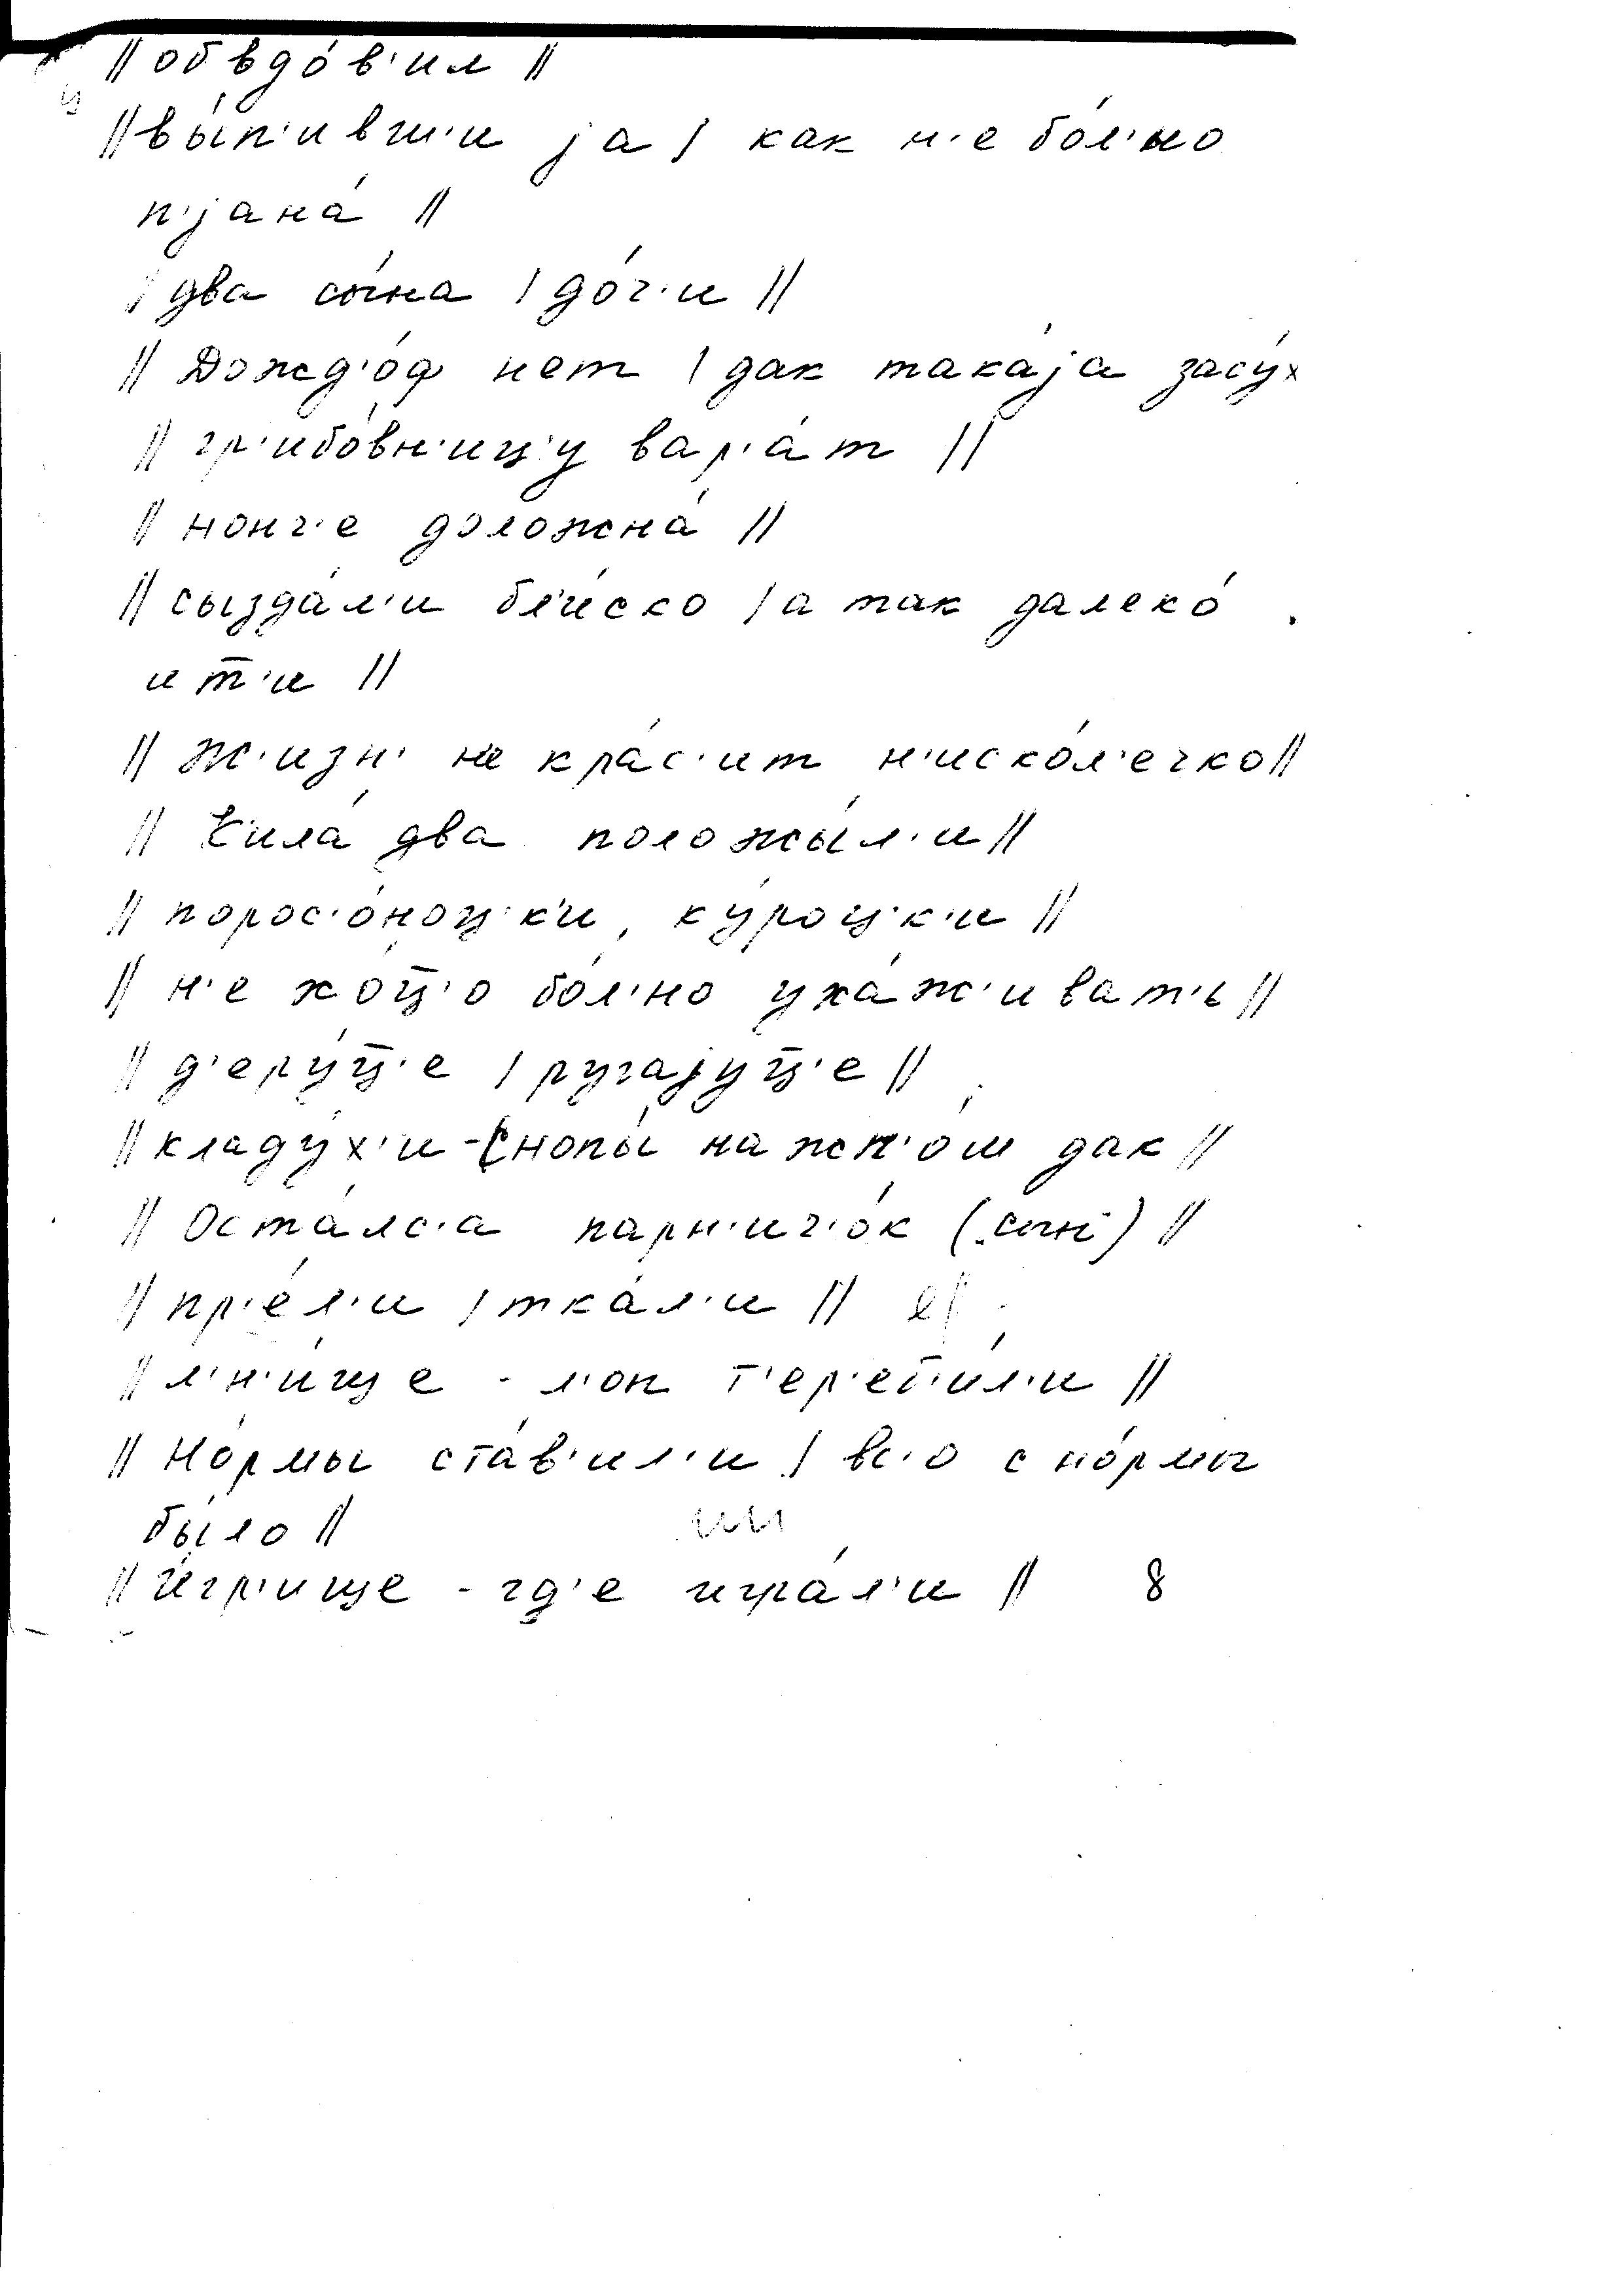 || обвдо́в'ил ||
|| вы́п'ивш'и ја | как н'е бо́л'но
п'јана́ ||
| два сы́на | до́ч'и ||
|| Дожд'о́ф нет | дак така́ја засу́х
|| гр'ибо́вн'иц'у вар'а́т ||
|| нонч'е доложна́ ||
|| сызда́л'и бл'и́ско | а так далеко́
ит̅'и ||
|| Ж'изн' не кра́с'ит н'иско́л'ечко ||
|| К'ила́ два положы́л'и ||
|| порос'о́ноц'к'и, ку́роц'к'и ||
|| н'е хо́ц̅'о бо́л'но уха́ж'иват'ь ||
|| д'еру́ц̅'е | ругајуц̅'е ||
|| кладу́х'и - снопы́ нажн'о́м дак ||
|| Оста́лс'а парн'ич'о́к (сын) ||
|| пр'е́л'и | тка́л'и ||
|| л'н'и́ще - л'он т'ер'еб'и́л'и ||
|| Но́рмы ста́в'ил'и | вс'о с но́рмы
бы́ло ||
|| И́гр'ище - гд'е игра́л'и || 8